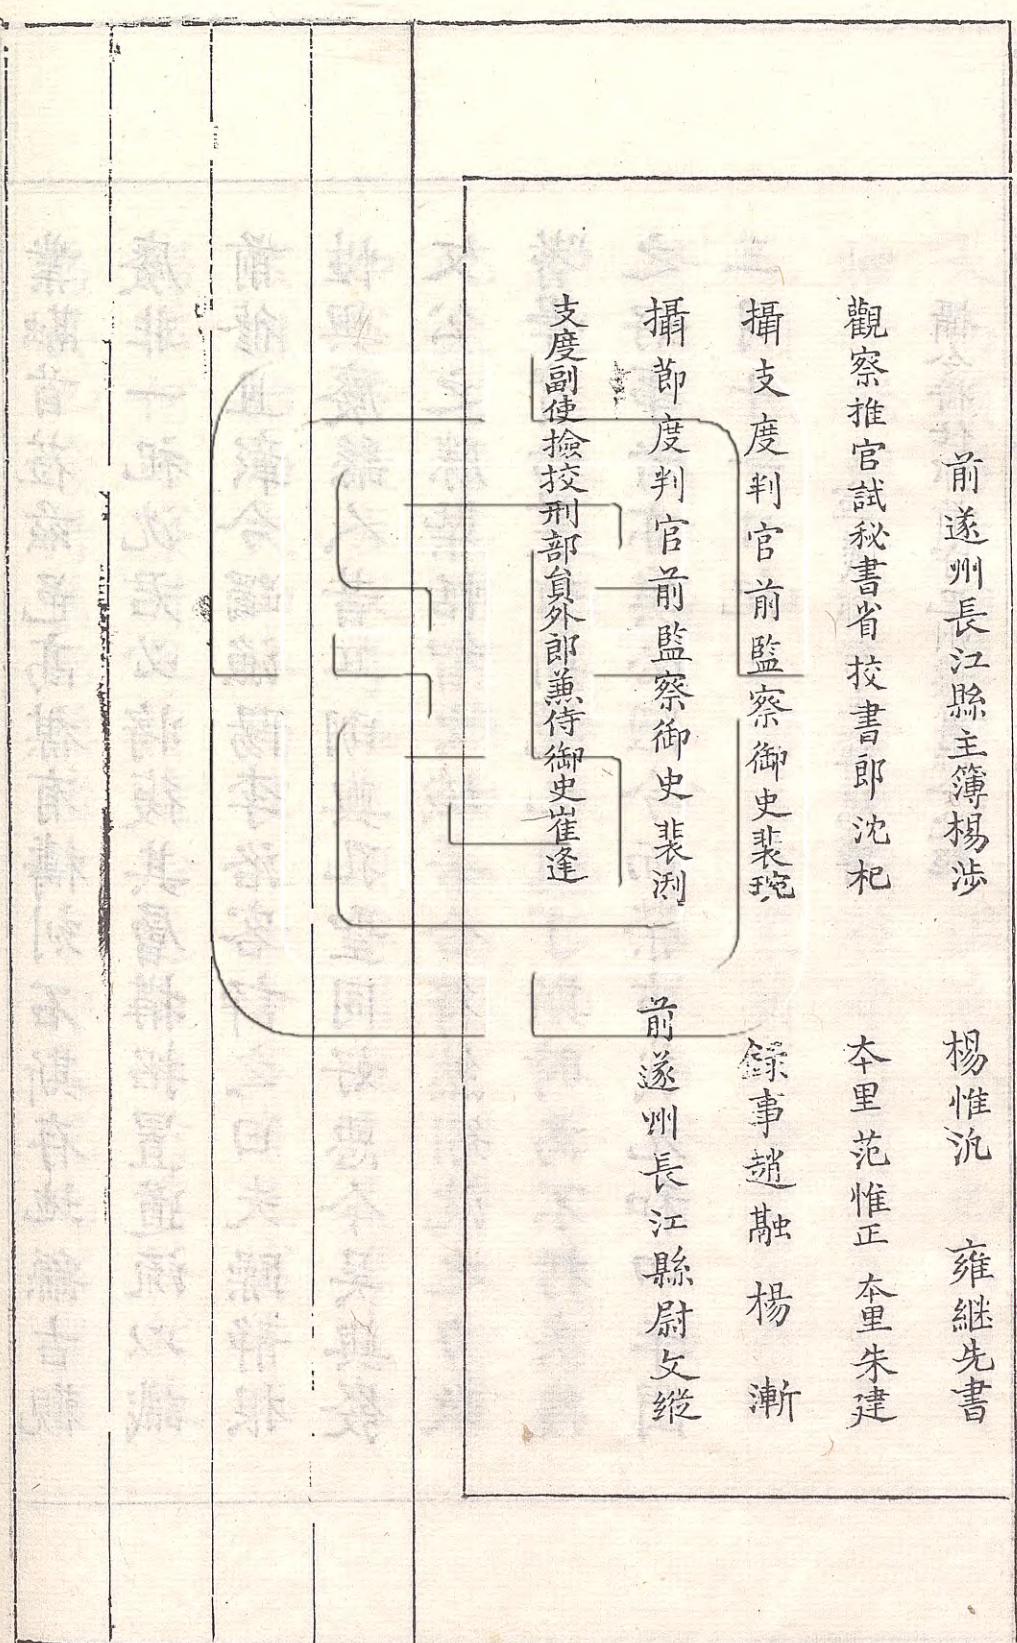 前遂州長江縣主簿楊涉　楊惟氿　雍継先書
觀察推官試秘書省挍書郎沈杞　本里范惟正　本里朱建
攝支度判官前監察御史裴琬　錄事趙融　楊漸
攝節度判官前監察御史裴　前遂州長江縣尉文縱
支度副使撿挍刑部員外郎蒹侍御史崔逢